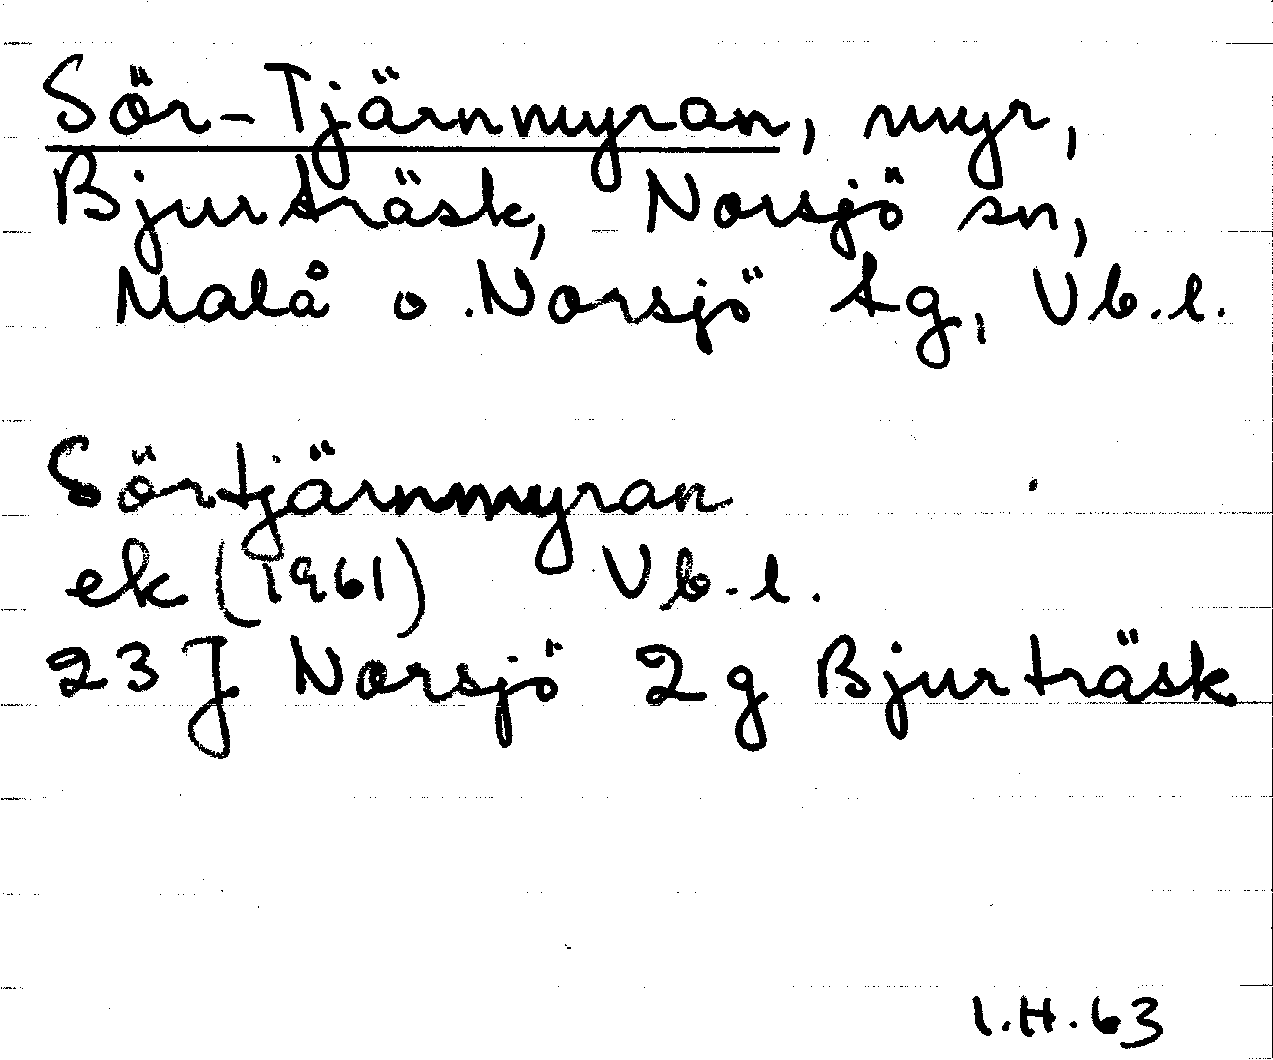 Sör-Tjärnmyran, myr,
Bjurträsk, Norsjö sn,
Malå o. Norsjö tg, Vb.l.
Sörtjärnmyran
ek (1961) Vb.l.
23 J Norsjö 2 g Bjurträsk
I.H. 63